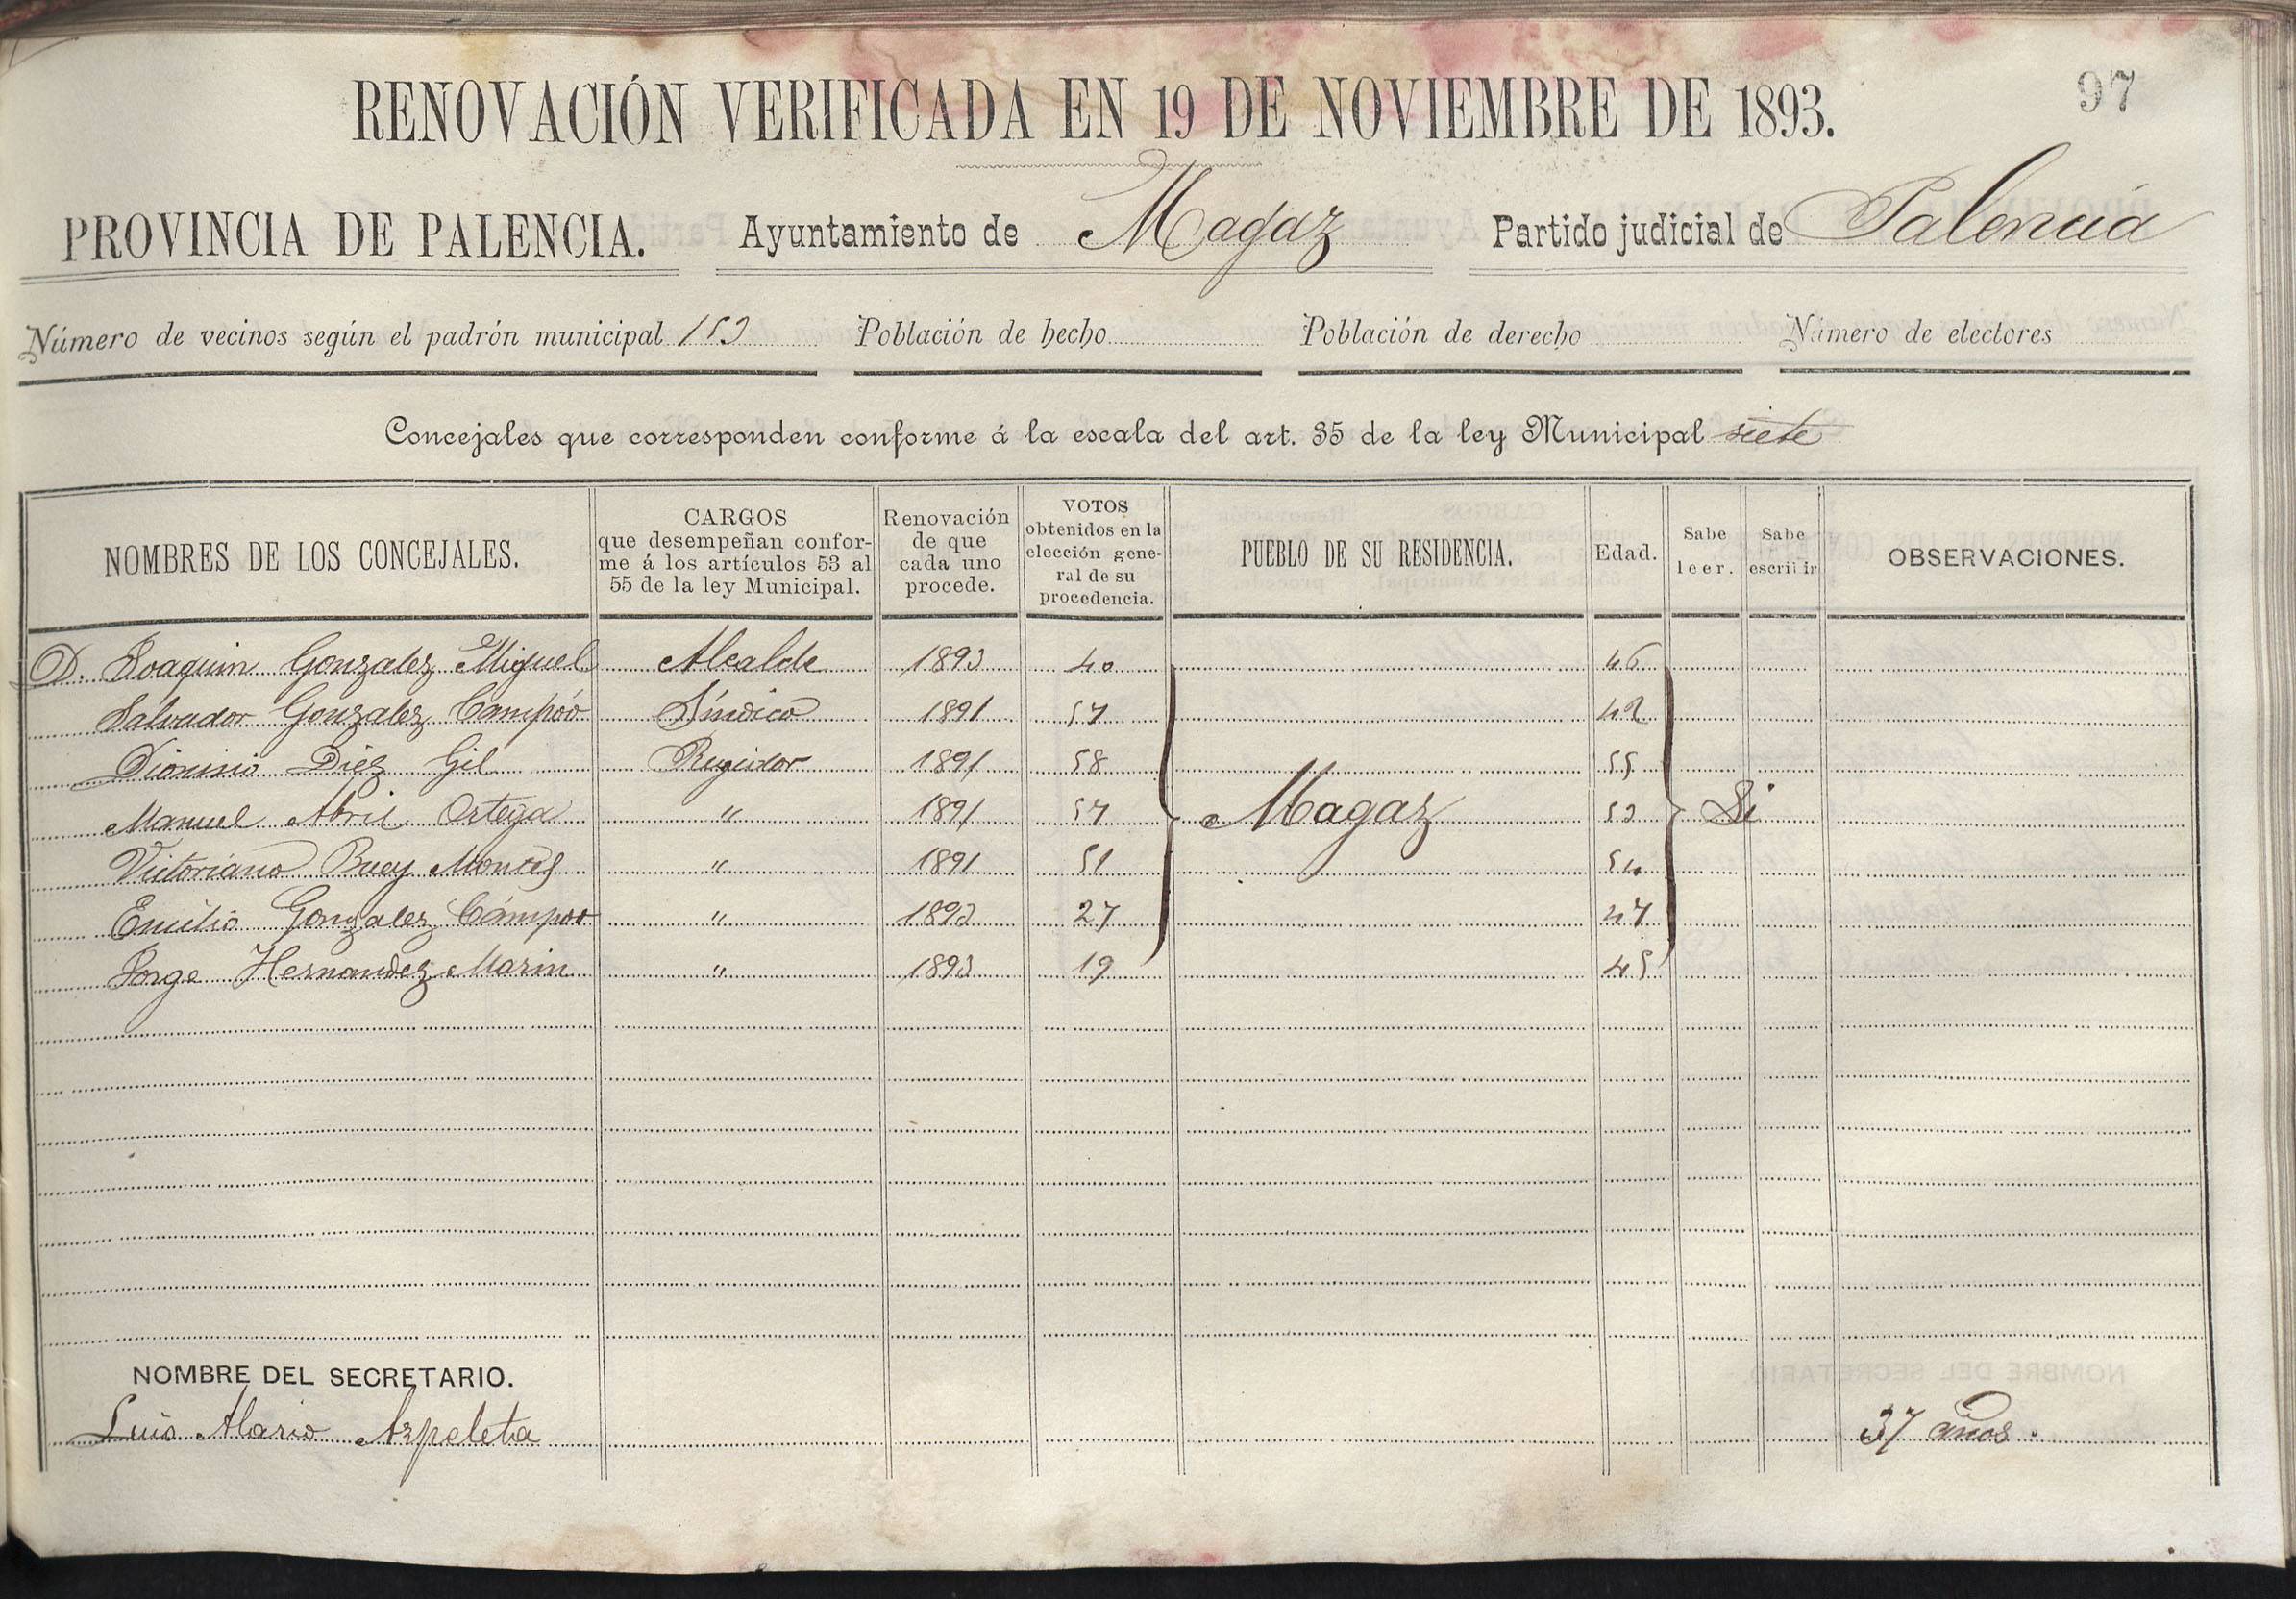 97
RENOVACIÓN VERIFICADA EN 19 DE NOVIEMBRE DE 1893.
PROVINCIA DE PALENCIA. Ayuntamiento de Magaz Partido judicial de Palencia
Número de vecinos según el padrón municipal 153 Población de hecho Población de derecho Número de electores
Concejales que corresponden conforme á la escala del art. 35 de la ley Municipal siete
NOMBRES DE LOS CONCEJALES. CARGOS que desempeñan conforme á los artículos 53 al 55 de la ley Municipal. Renovación de que cada uno procede. VOTOS obtenidos en la elección general de su procedencia. PUEBLO DE SU RESIDENCIA. Edad. Sabe leer. Sabe escribir OBSERVACIONES.
D. Joaquin Gonzalez Miguel Alcalde 1893 40 46
Salvador Gonzalez Campóo Síndico 1891 57 42
Dionisio Diez Gil Regidor 1891 58 55
Manuel Abril Ortega " 1891 57 Magaz 53 Si
Victoriano Buey Montes " 1891 51 54
Emilio Gonzalez Cámpoo " 1893 27 47
Jorge Hernandez Marin " 1893 19 45
NOMBRE DEL SECRETARIO.
Luis Alario Azpeleta 37 años.